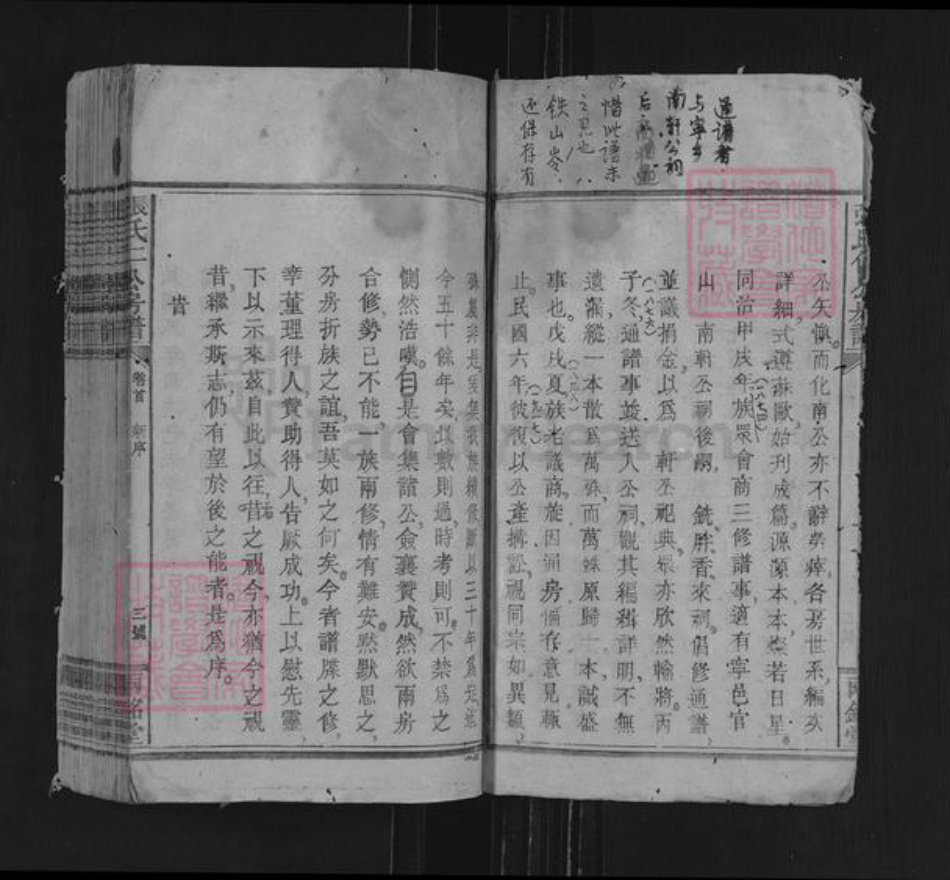 通譜者
与寧乡
南軒公祠
后
惜此語未
之見也
铁山岺
还保存有
公矣慎而化南公亦不辭勞瘁各房世系編矣
詳細式遵蘇歐始刋成篇源源本本燦若日星
同治甲戌年族眾會商三修譜事適有寧邑官
(一八七四)
山 南軒公祠後嗣 銑胖香來祠倡修通譜
並議捐金以爲 軒公祀典眾亦欣然輸將丙
子冬通譜事並送入公祠觀其編緝詳明不無
(一八七六)
遺漏縱一本散爲萬殊而萬殊原歸一本誠盛
事也戊戌夏族老議商旋因通房備存意見輒
止民國六年彼復以公產搆訟視同宗如異類
(一九一七)
殊屬非是
今五十餘年矣以數則過時考則可不禁爲之
惻然浩嘆自是會集諸公僉襄贊成然欲兩房
合修勢已不能一族兩修情有難安熟默思之
分房折族之誼吾莫如之何矣今者譜牒之修
幸董理得人贊助得人告厥成功上以慰先靈
下以示來茲自此以往昔之視今亦猶今之視
昔繼承斯志仍有望於後之能者是爲序
昔
張氏仁公房譜
卷首 新序
三號
兩銘堂